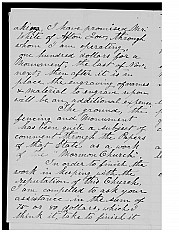 I have promised Mr.
White of Afton Iowa, through
whom I am operating,
one hundred dollars for a
Monument, the last of Nov.
next, after it is in
place the engraving of names
& material to engrave upon
will be an additional expense
The ground, the
fencing and Monument
has been quite a subject of
comment through the Papers
of that State as a work
of Mormon Church.
In order to finish the
work in keeping with the
reputation of this Church,
I am compelled to ask your
assistance in the sum of
75 or 80 dollars which I
think it take to finish it